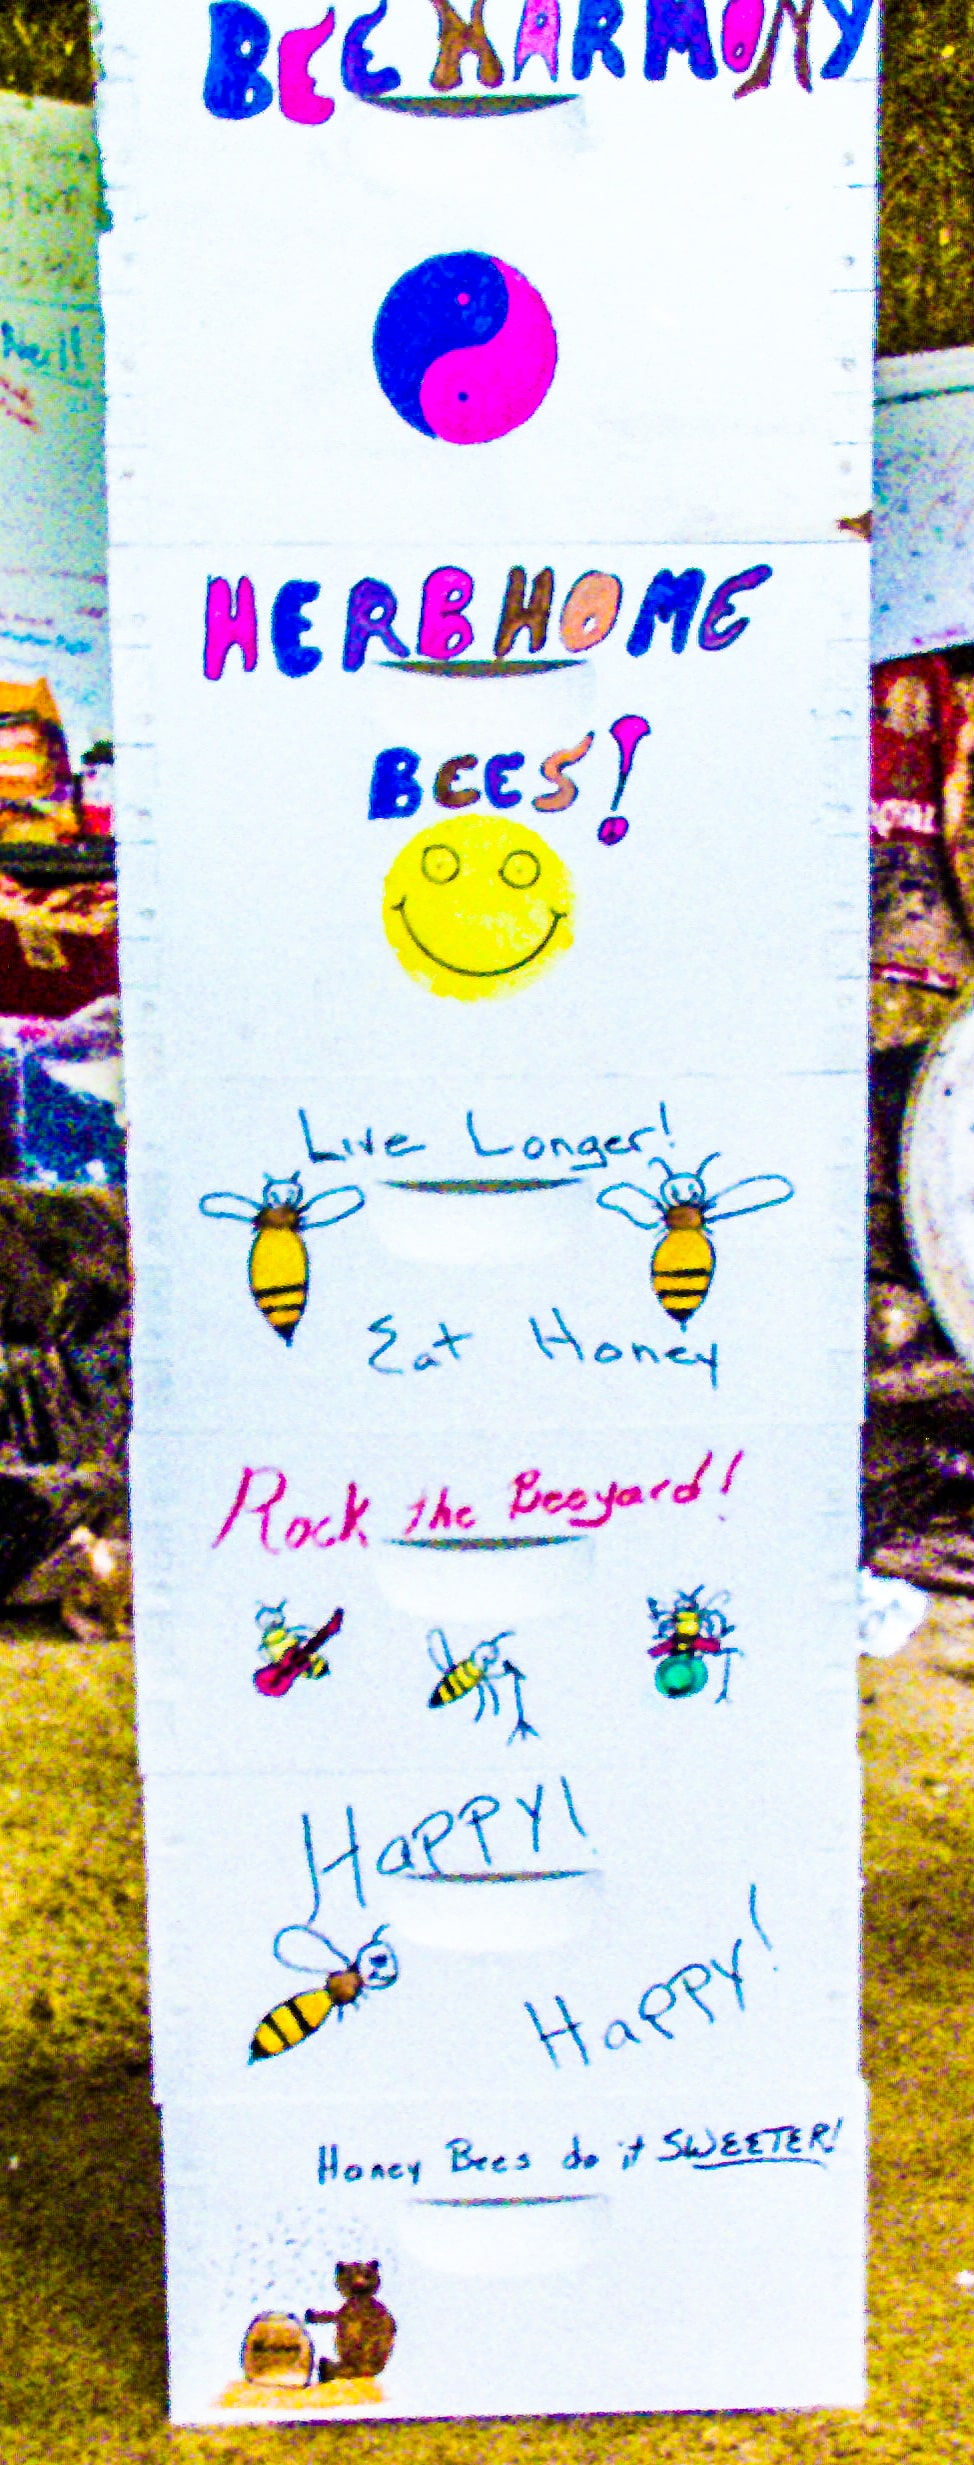 BEE HARMONY
HERB HOME
BEES!
Live Longer!
Eat Honey
Rock the Beeyard!
HAPPY!
HAPPY!
Honey Bees do it SWEETER!